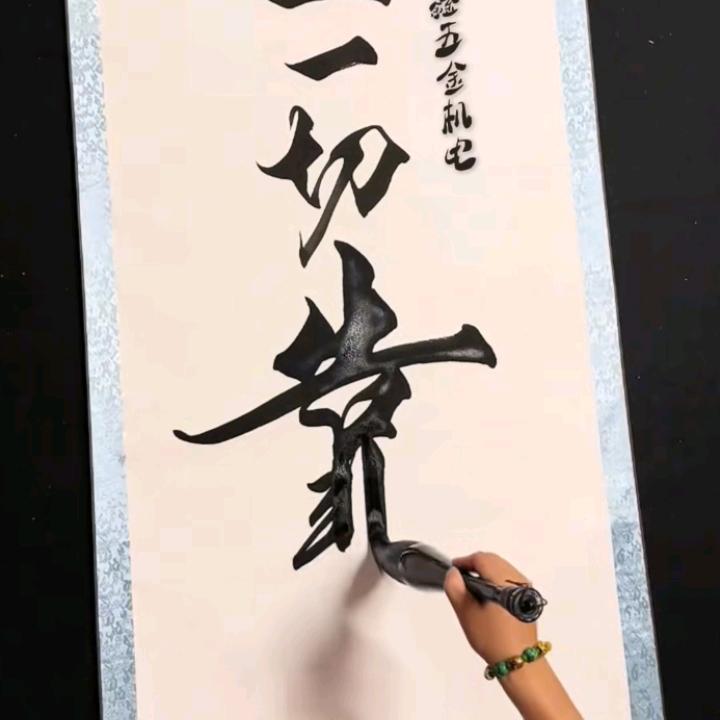 五金机电
一切靠